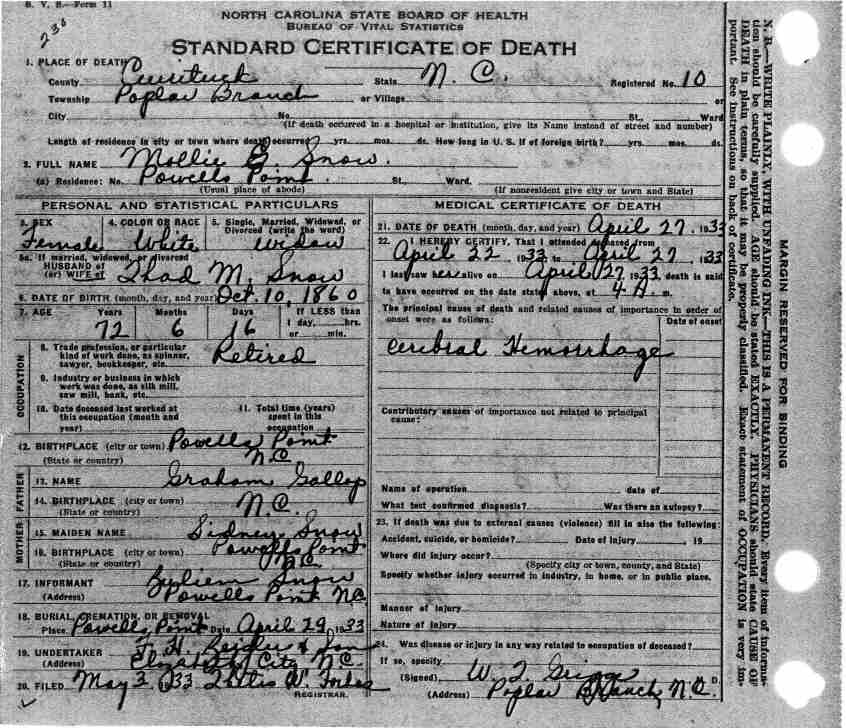 B. V. S.—Form 11
236
NORTH CAROLINA STATE BOARD OF HEALTH
BUREAU OF VITAL STATISTICS
STANDARD CERTIFICATE OF DEATH
1. PLACE OF DEATH
County Currituck State N. C. Registered No. 10
Township Poplar Branch or Village or
City No. St., Ward
(If death occurred in a hospital or institution, give its Name instead of street and number)
Length of residence in city or town where death occurred yrs. mos. ds. How long in U. S. if of foreign birth? yrs. mos. ds.
2. FULL NAME Mollie G. Snow.
(a) Residence: No. Powells Point St., Ward.
(Usual place of abode) (If nonresident give city or town and State)
PERSONAL AND STATISTICAL PARTICULARS
3. SEX 4. COLOR OR RACE 5. Single, Married, Widowed, or
Divorced (write the word)
Female White widow
5a. If married, widowed, or divorced
HUSBAND of
(or) WIFE of Thad M. Snow
6. DATE OF BIRTH (month, day, and year) Oct. 10, 1860
7. AGE Years Months Days If LESS than
1 day, hrs.
or min.
72 6 16
OCCUPATION
8. Trade, profession, or particular
kind of work done, as spinner,
sawyer, bookkeeper, etc. Retired
9. Industry or business in which
work was done, as silk mill,
saw mill, bank, etc.
10. Date deceased last worked at
this occupation (month and
year)
11. Total time (years)
spent in this
occupation
12. BIRTHPLACE (city or town) Powells Point
(State or country) N.C.
FATHER
13. NAME Graham Gallop
14. BIRTHPLACE (city or town)
(State or country) N.C.
MOTHER
15. MAIDEN NAME Sidney Snow
16. BIRTHPLACE (city or town) Powells Point
(State or country) N.C.
17. INFORMANT Snow
(Address) Powells Point N.C.
18. BURIAL, CREMATION, OR REMOVAL
Place Powells Point Date April 29, 1933
19. UNDERTAKER & Son
(Address) Elizabeth City N.C.
20. FILED May 3, 1933 W. Forbes
REGISTRAR.
MEDICAL CERTIFICATE OF DEATH
21. DATE OF DEATH (month, day, and year) April 27, 1933
22. I HEREBY CERTIFY, That I attended deceased from
April 22, 1933 to April 27, 1933
I last saw her alive on April 27 1933, death is said
to have occurred on the date stated above, at 4 A. m.
The principal cause of death and related causes of importance in order of
onset were as follows:
Date of onset
Cerebral Hemorrhage
Contributory causes of importance not related to principal
cause:
Name of operation date of
What test confirmed diagnosis? Was there an autopsy?
23. If death was due to external causes (violence) fill in also the following:
Accident, suicide, or homicide? Date of injury , 19
Where did injury occur?
(Specify city or town, county, and State)
Specify whether injury occurred in industry, in home, or in public place.
Manner of Injury
Nature of Injury
24. Was disease or injury in any way related to occupation of deceased?
If so, specify
(Signed) W. T. Griggs D.
(Address) Poplar Branch, N.C.
MARGIN RESERVED FOR BINDING
N. B.—WRITE PLAINLY, WITH UNFADING INK—THIS IS A PERMANENT RECORD. Every item of informa-
tion should be carefully supplied. AGE should be stated EXACTLY. PHYSICIANS should state CAUSE OF
DEATH in plain terms, so that it may be properly classified. Exact statement of OCCUPATION is very im-
portant. See instructions on back of certificate.